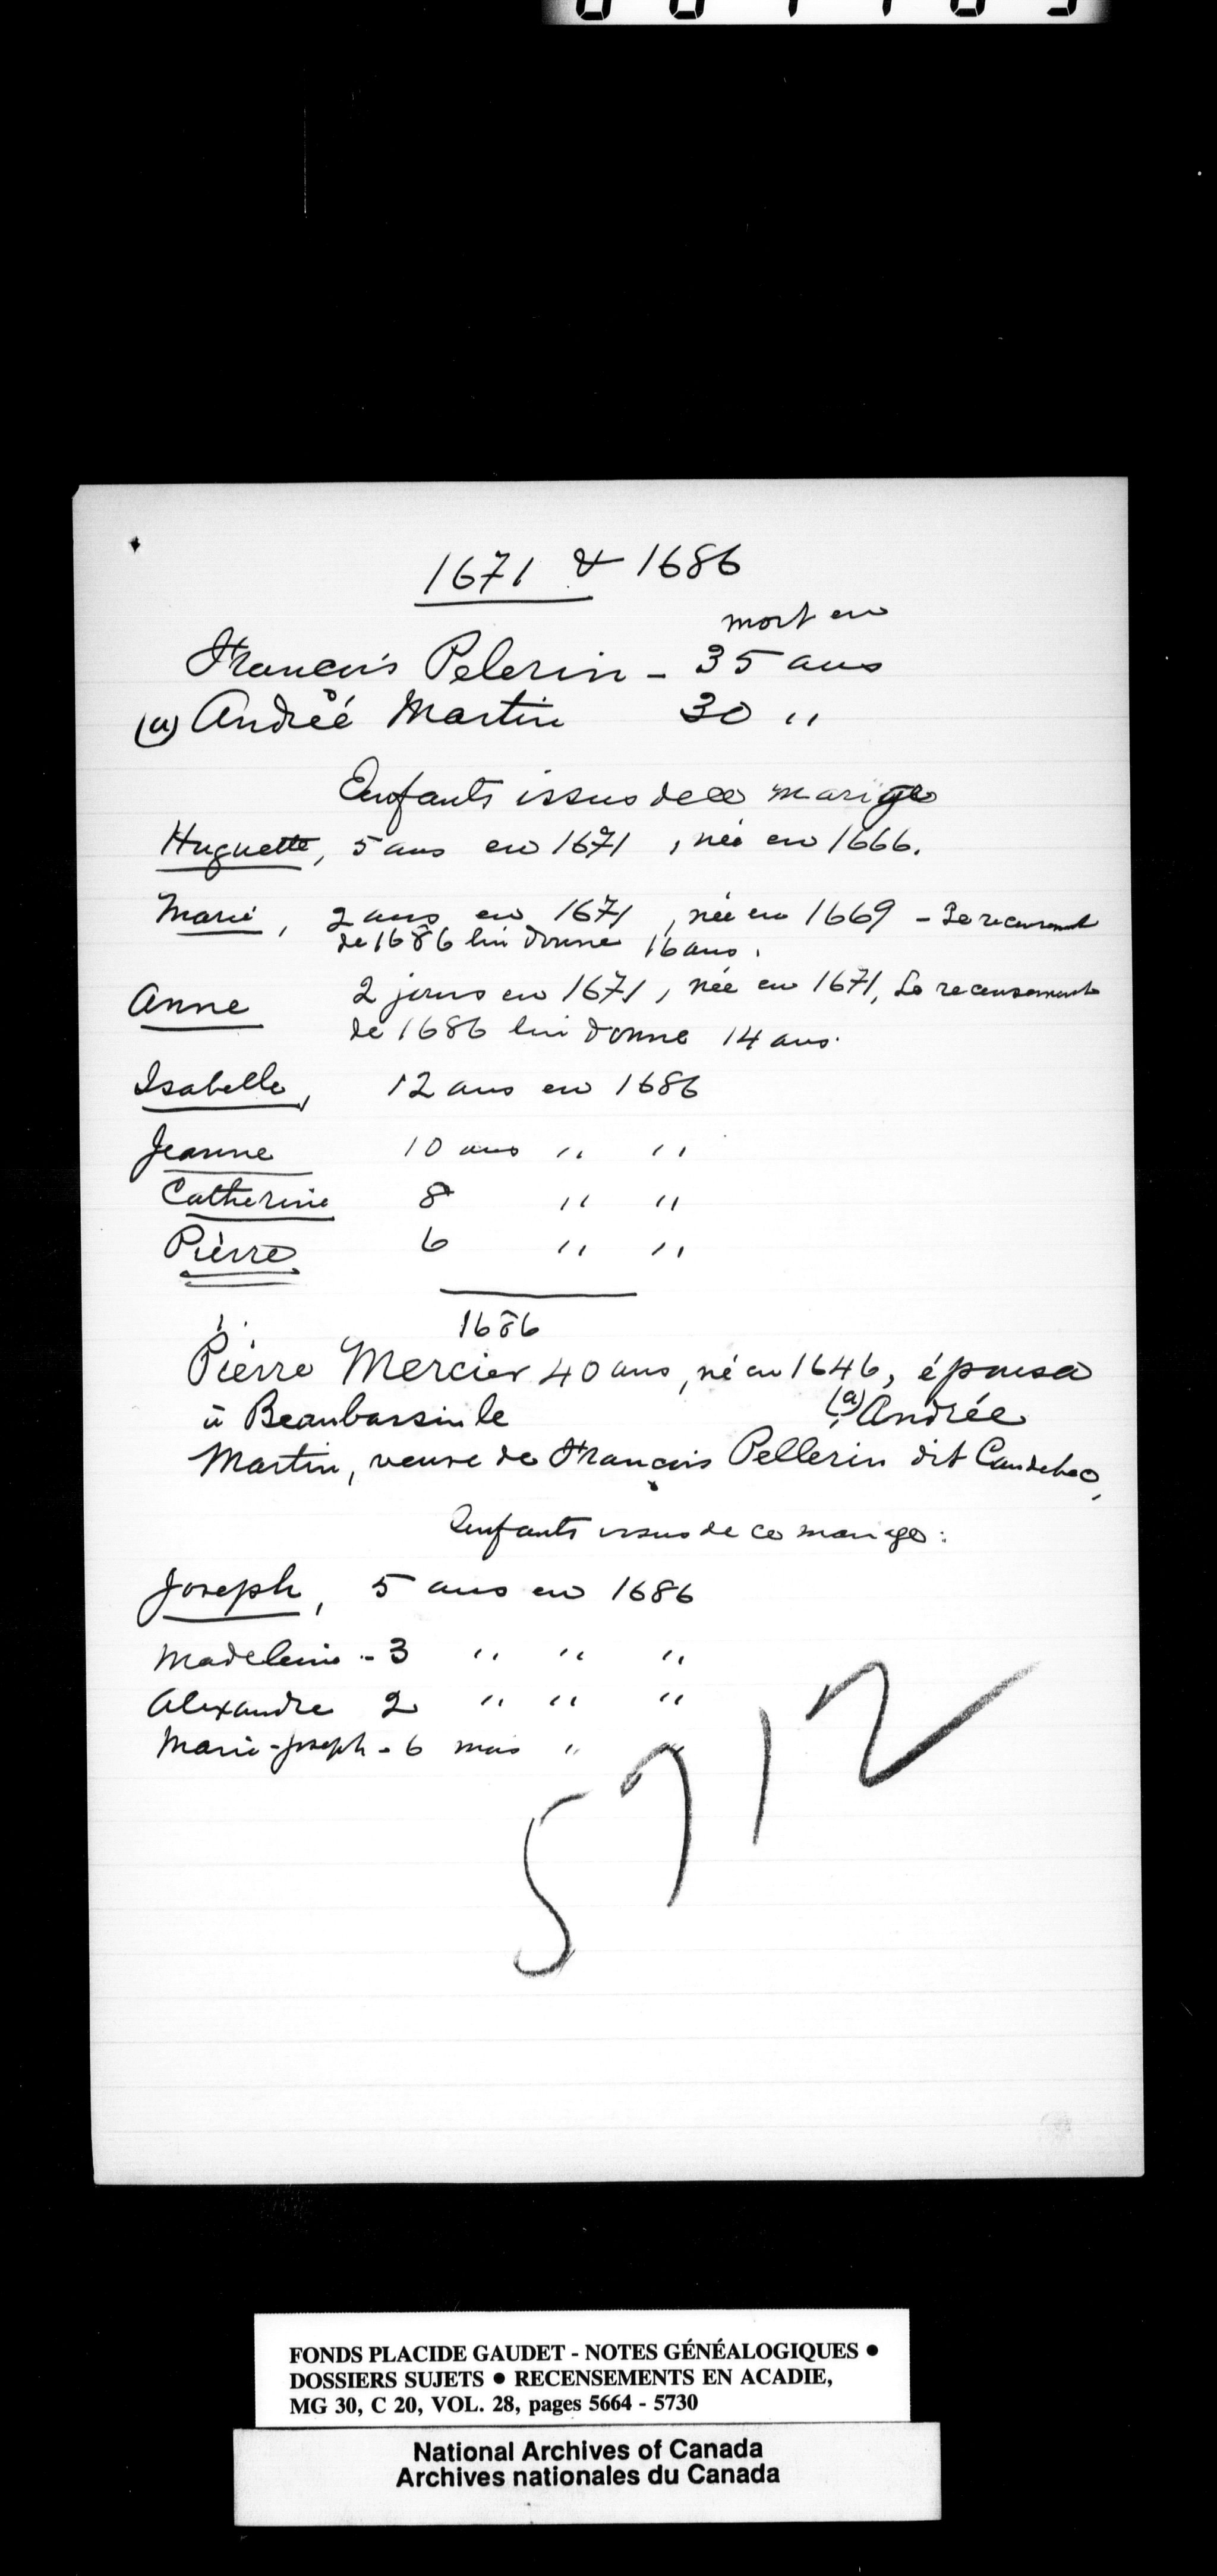 1671 & 1686
mort en
François Pelerin - 35 ans
(a) Andrée Martin 30 "
Enfants issus de ce marige
Huguette, 5 ans en 1671, née en 1666.
Marie, 2 ans en 1671, née en 1669 - Le recensement
de 1686 lui donne 16 ans.
Anne 2 jours en 1671, née en 1671, Le recensement
de 1686 lui donne 14 ans.
Isabelle, 12 ans en 1686
Jeanne 10 ans " "
Catherine 8 " "
Pierre 6 " "
1686
Pierre Mercier 40 ans, né en 1646, épousa
à Beaubassin le (a) Andrée
Martin, veuve de François Pellerin dit Caudebec,
Enfants issus de ce mariage:
Joseph, 5 ans en 1686
Madeleine - 3 " " "
Alexandre 2 " " "
Marie-Joseph - 6 mois " "
5712
FONDS PLACIDE GAUDET - NOTES GÉNÉALOGIQUES ●
DOSSIERS SUJETS ● RECENSEMENTS EN ACADIE,
MG 30, C 20, VOL. 28, pages 5664 - 5730
National Archives of Canada
Archives nationales du Canada